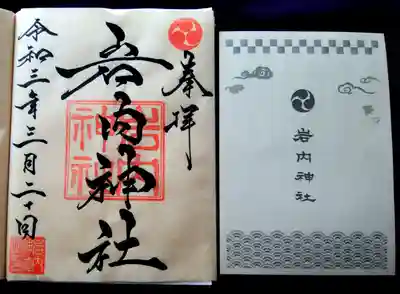 奉拝
岩内神社
岩内神社
令和三年三月二十日
岩内神社